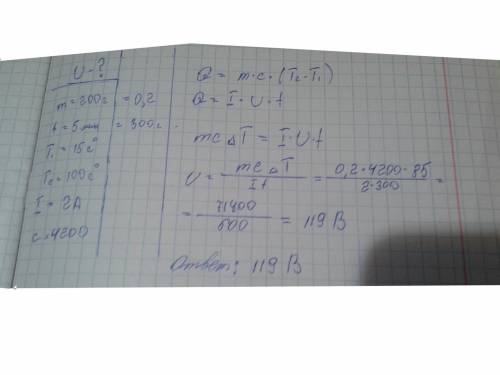 U - ?
m = 200г = 0,2
t = 5 мин = 300с.
T₁ = 15 c°
T₂ = 100 c°
I = 2A
c = 4200
Q = m·c·(T₂-T₁)
Q = I·U·t
mc△T = I·U·t
U = mc△T / It = 0,2·4200·85 / 2·300 =
= 71400 / 600 = 119 В
Ответ: 119 В